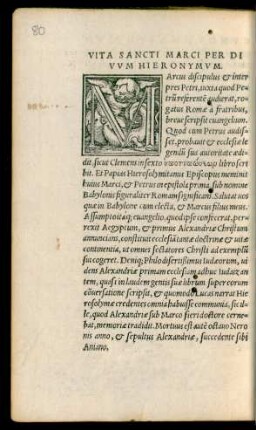 80
VITA SANCTI MARCI PER DI
VVM HIERONYMVM.
MArcus discipulus & inter
pres Petri, iuxta quod Pe-
trū referentē audierat, ro-
gatus Romæ a fratribus,
breue scripsit euangelium.
Quod cum Petrus audis-
set, probauit & ecclesiæ le-
gendū sua autoritate ædi-
dit, sicut Clemens in sexto libro scri
bit. Et Papias Hierosolymitanus Episcopus meminit
huius Marci, & Petrus in epistola prima, sub nomine
Babylonis figuraliter Romam significans. Salutat uos
quæ in Babylone cum electa, & Marcus filius meus.
Assumpto itaq; euangelio, quod ipse confecerat, per-
rexit Aegyptum, & primus Alexandriæ Christum
annuncians, constituit ecclesiā tantæ doctrinæ & uitæ
continentia, ut omnes sectatores Christi ad exemplū
sui cogeret. Deniq; Philo disertissimus Iudæorum, ui
dens Alexandriæ primam ecclesiam adhuc Iudaizan
tem, quasi in laudem gentis suæ librum super eorum
cōuersatione scripsit, & quomodo Lucas narrat Hie
rosolymæ credentes omnia habuisse communia, sic il-
le, quod Alexandriæ sub Marco fieri doctore cerne-
bat, memoriæ tradidit. Mortuus est autē octauo Nero
nis anno, & sepultus Alexandriæ, succedente sibi
Aniano.